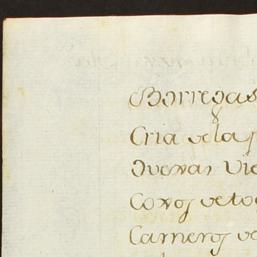 Borregas
Cria de las
Duenas Vie
Coxos de to
Carneros de